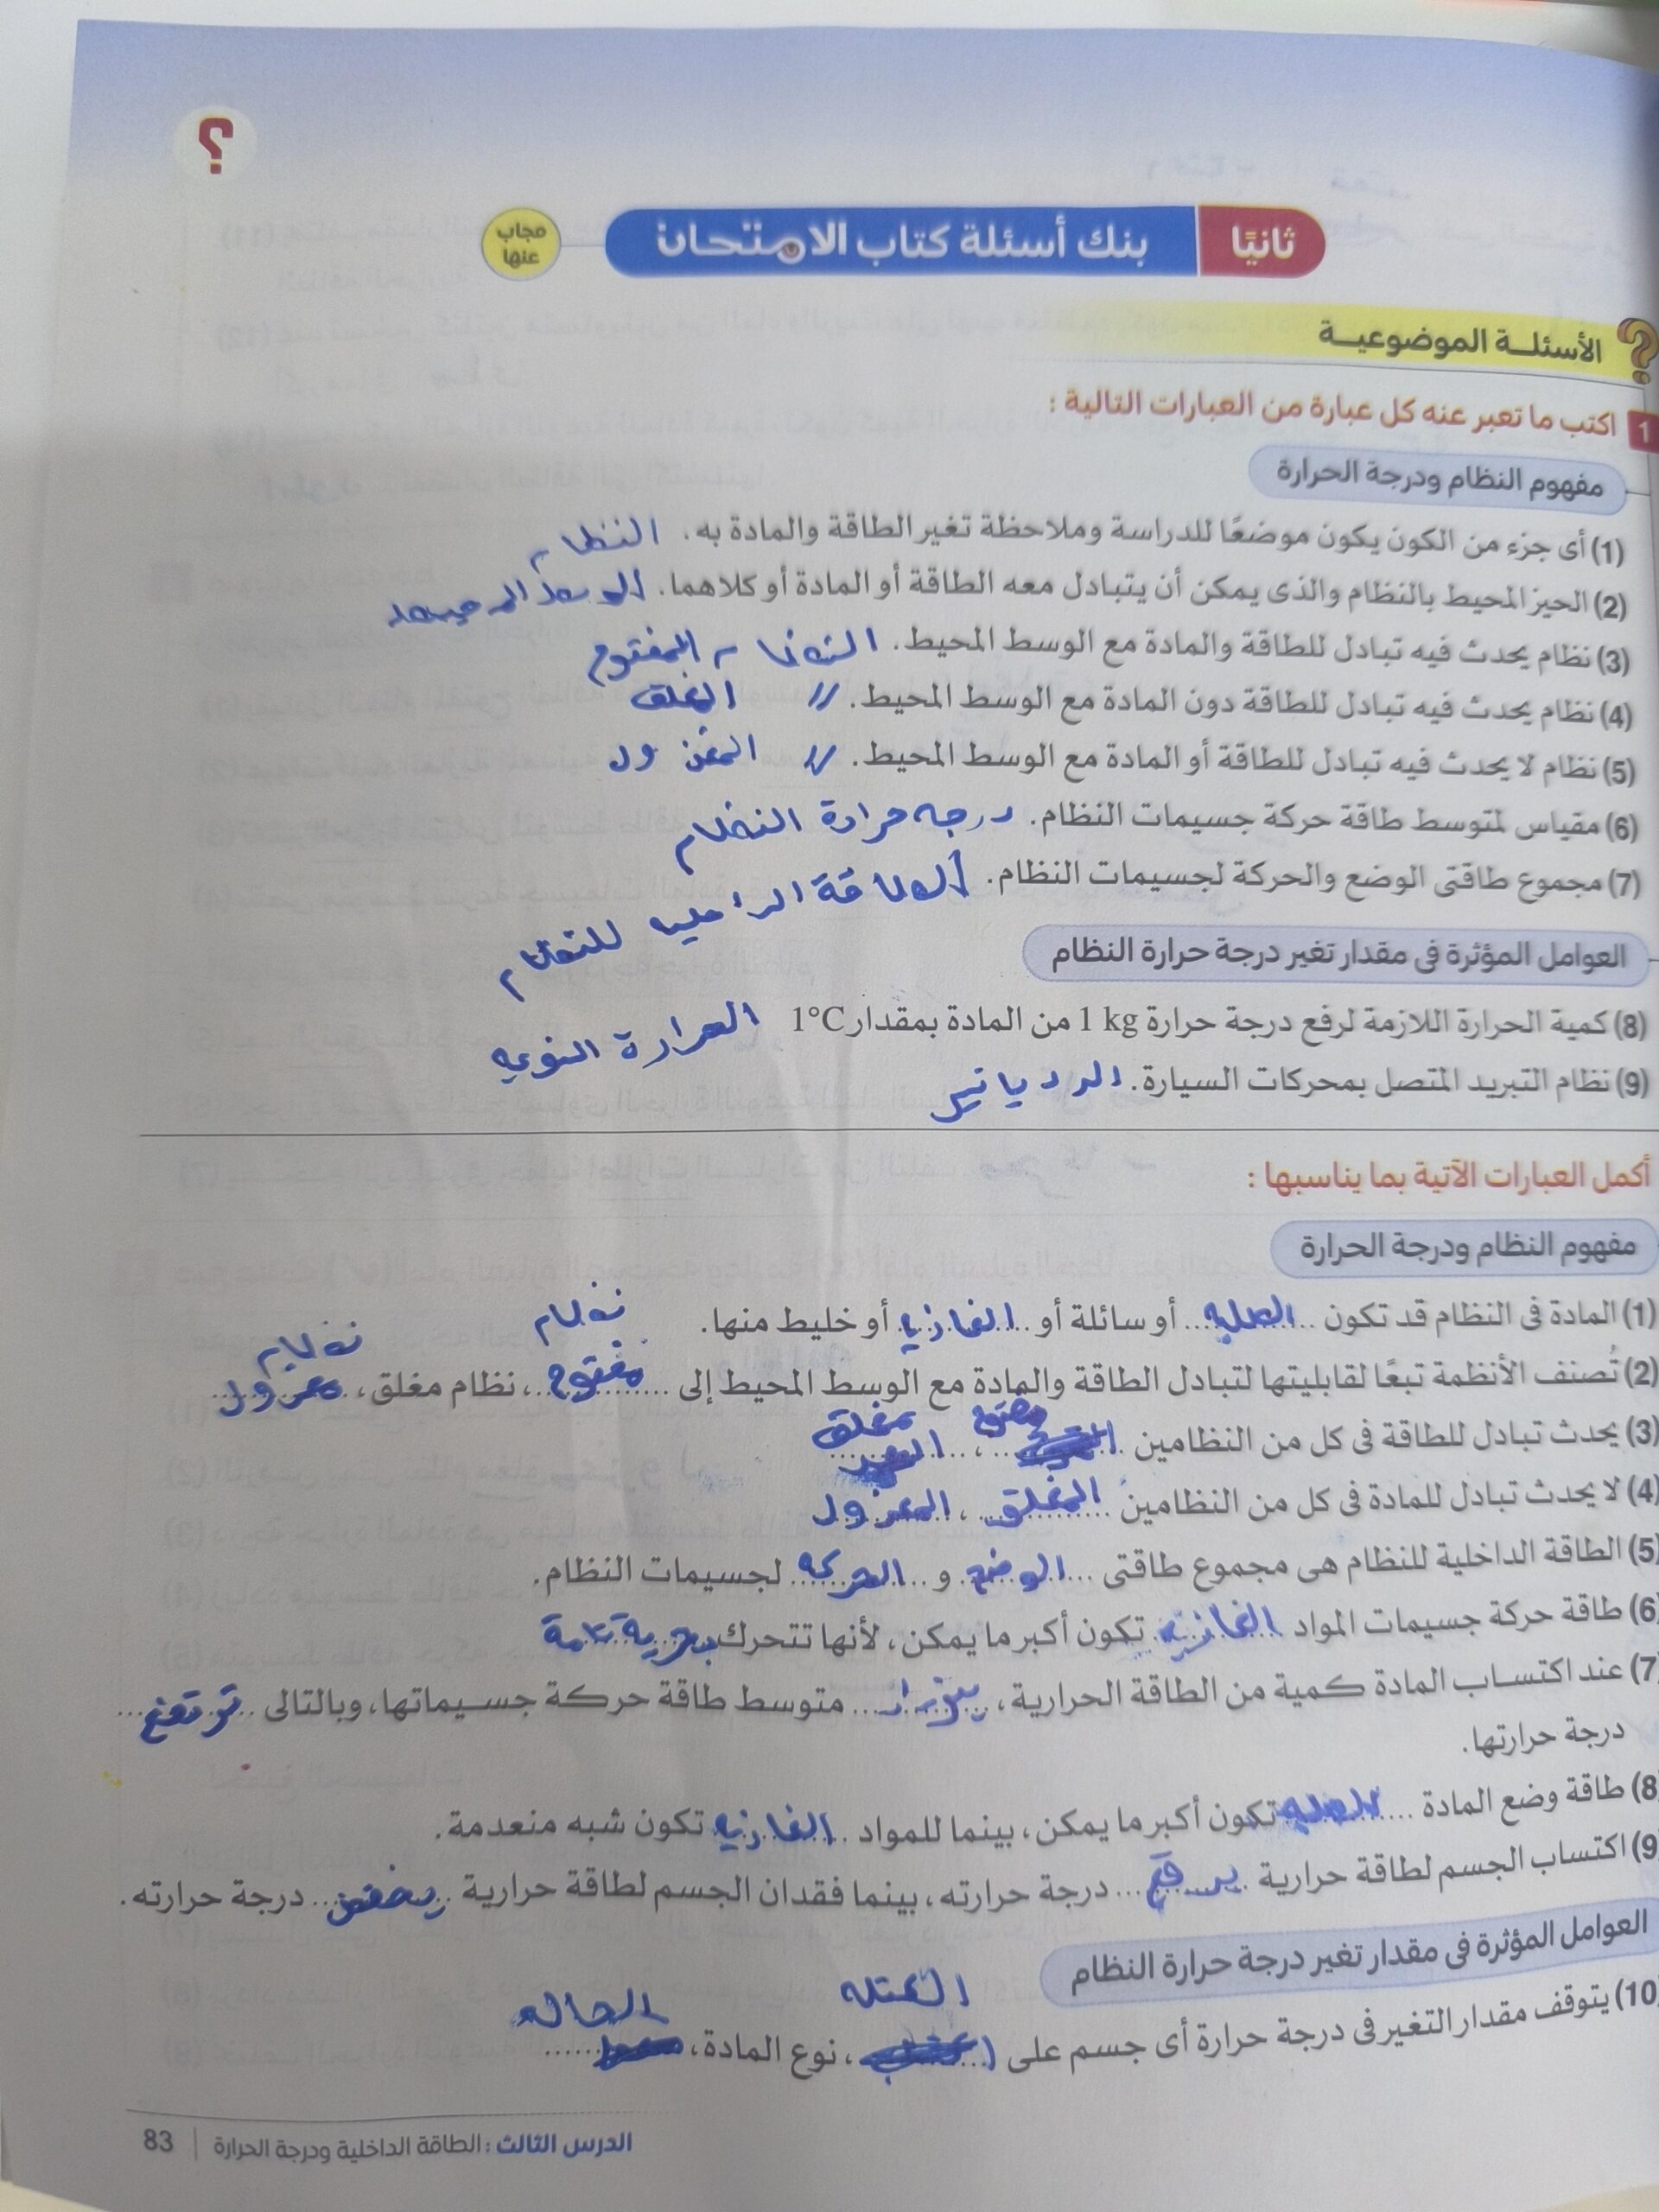 ؟
ثانيًا بنك أسئلة كتاب الامتحان مجاب عنها
الأسئلة الموضوعية
1 اكتب ما تعبر عنه كل عبارة من العبارات التالية :
مفهوم النظام ودرجة الحرارة
(1) أى جزء من الكون يكون موضعًا للدراسة وملاحظة تغير الطاقة والمادة به. النظام
(2) الحيز المحيط بالنظام والذى يمكن أن يتبادل معه الطاقة أو المادة أو كلاهما. الوسط المحيط
(3) نظام يحدث فيه تبادل للطاقة والمادة مع الوسط المحيط. النظام المفتوح
(4) نظام يحدث فيه تبادل للطاقة دون المادة مع الوسط المحيط. // المغلق
(5) نظام لا يحدث فيه تبادل للطاقة أو المادة مع الوسط المحيط. // المعزول
(6) مقياس لمتوسط طاقة حركة جسيمات النظام. درجه حرارة النظام
(7) مجموع طاقتى الوضع والحركة لجسيمات النظام. الطاقة الداخليه للنظام
العوامل المؤثرة فى مقدار تغير درجة حرارة النظام
(8) كمية الحرارة اللازمة لرفع درجة حرارة 1 kg من المادة بمقدار 1°C الحرارة النوعيه
(9) نظام التبريد المتصل بمحركات السيارة. الردياتير
أكمل العبارات الآتية بما يناسبها :
مفهوم النظام ودرجة الحرارة
(1) المادة فى النظام قد تكون الصلبه أو سائلة أو الغازيه أو خليط منها.
نظام نظام
(2) تُصنف الأنظمة تبعًا لقابليتها لتبادل الطاقة والمادة مع الوسط المحيط إلى مفتوح، نظام مغلق، معزول
(3) يحدث تبادل للطاقة فى كل من النظامين مفتوح، مغلق
(4) لا يحدث تبادل للمادة فى كل من النظامين المغلق، المعزول
(5) الطاقة الداخلية للنظام هى مجموع طاقتى الوضع و الحركه لجسيمات النظام.
(6) طاقة حركة جسيمات المواد الغازيه تكون أكبر ما يمكن، لأنها تتحرك بحرية تامة
(7) عند اكتساب المادة كمية من الطاقة الحرارية، يزداد متوسط طاقة حركة جسيماتها، وبالتالى ترتفع
درجة حرارتها.
(8) طاقة وضع المادة الصلبه تكون أكبر ما يمكن، بينما للمواد الغازيه تكون شبه منعدمة.
(9) اكتساب الجسم لطاقة حرارية يرفع درجة حرارته، بينما فقدان الجسم لطاقة حرارية يخفض درجة حرارته.
العوامل المؤثرة فى مقدار تغير درجة حرارة النظام
الكتله الحاله
(10) يتوقف مقدار التغير فى درجة حرارة أى جسم على ، نوع المادة،
الدرس الثالث : الطاقة الداخلية ودرجة الحرارة | 83